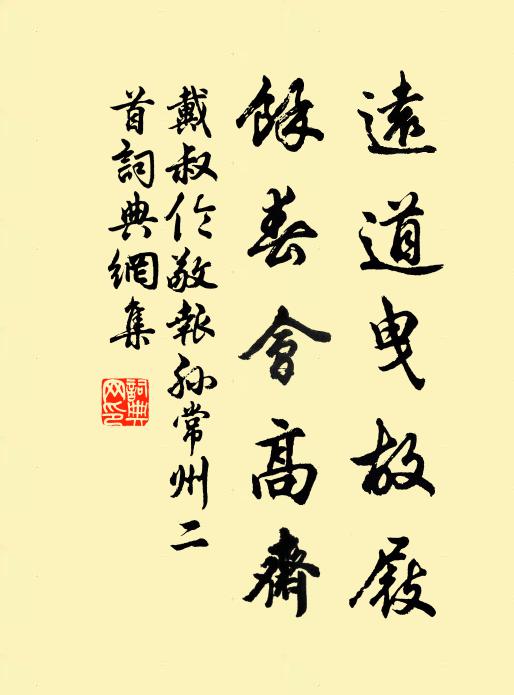 遠道曳故屐
餘春會高齋
戴叔倫敬報孫常州二
首詞典網集
詞典網印